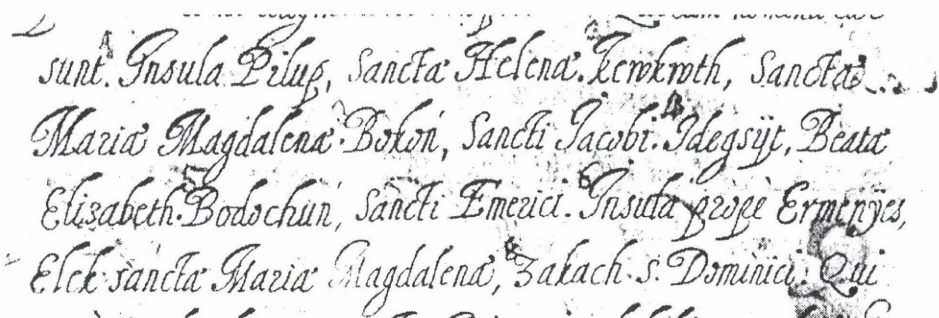 sunt. Insula Pilup, Sanctæ Helenæ. Kewkwth, Sanctæ
Mariæ Magdalenæ. Bokoń, Sancti Jacobi. Idegsÿt, Beatæ
Elisabeth. Bodochun, Sancti Emerici. Insula prope Ermenÿes,
Elek sanctæ Mariæ Magdalenæ, Zakach. s. Dominici. Qui